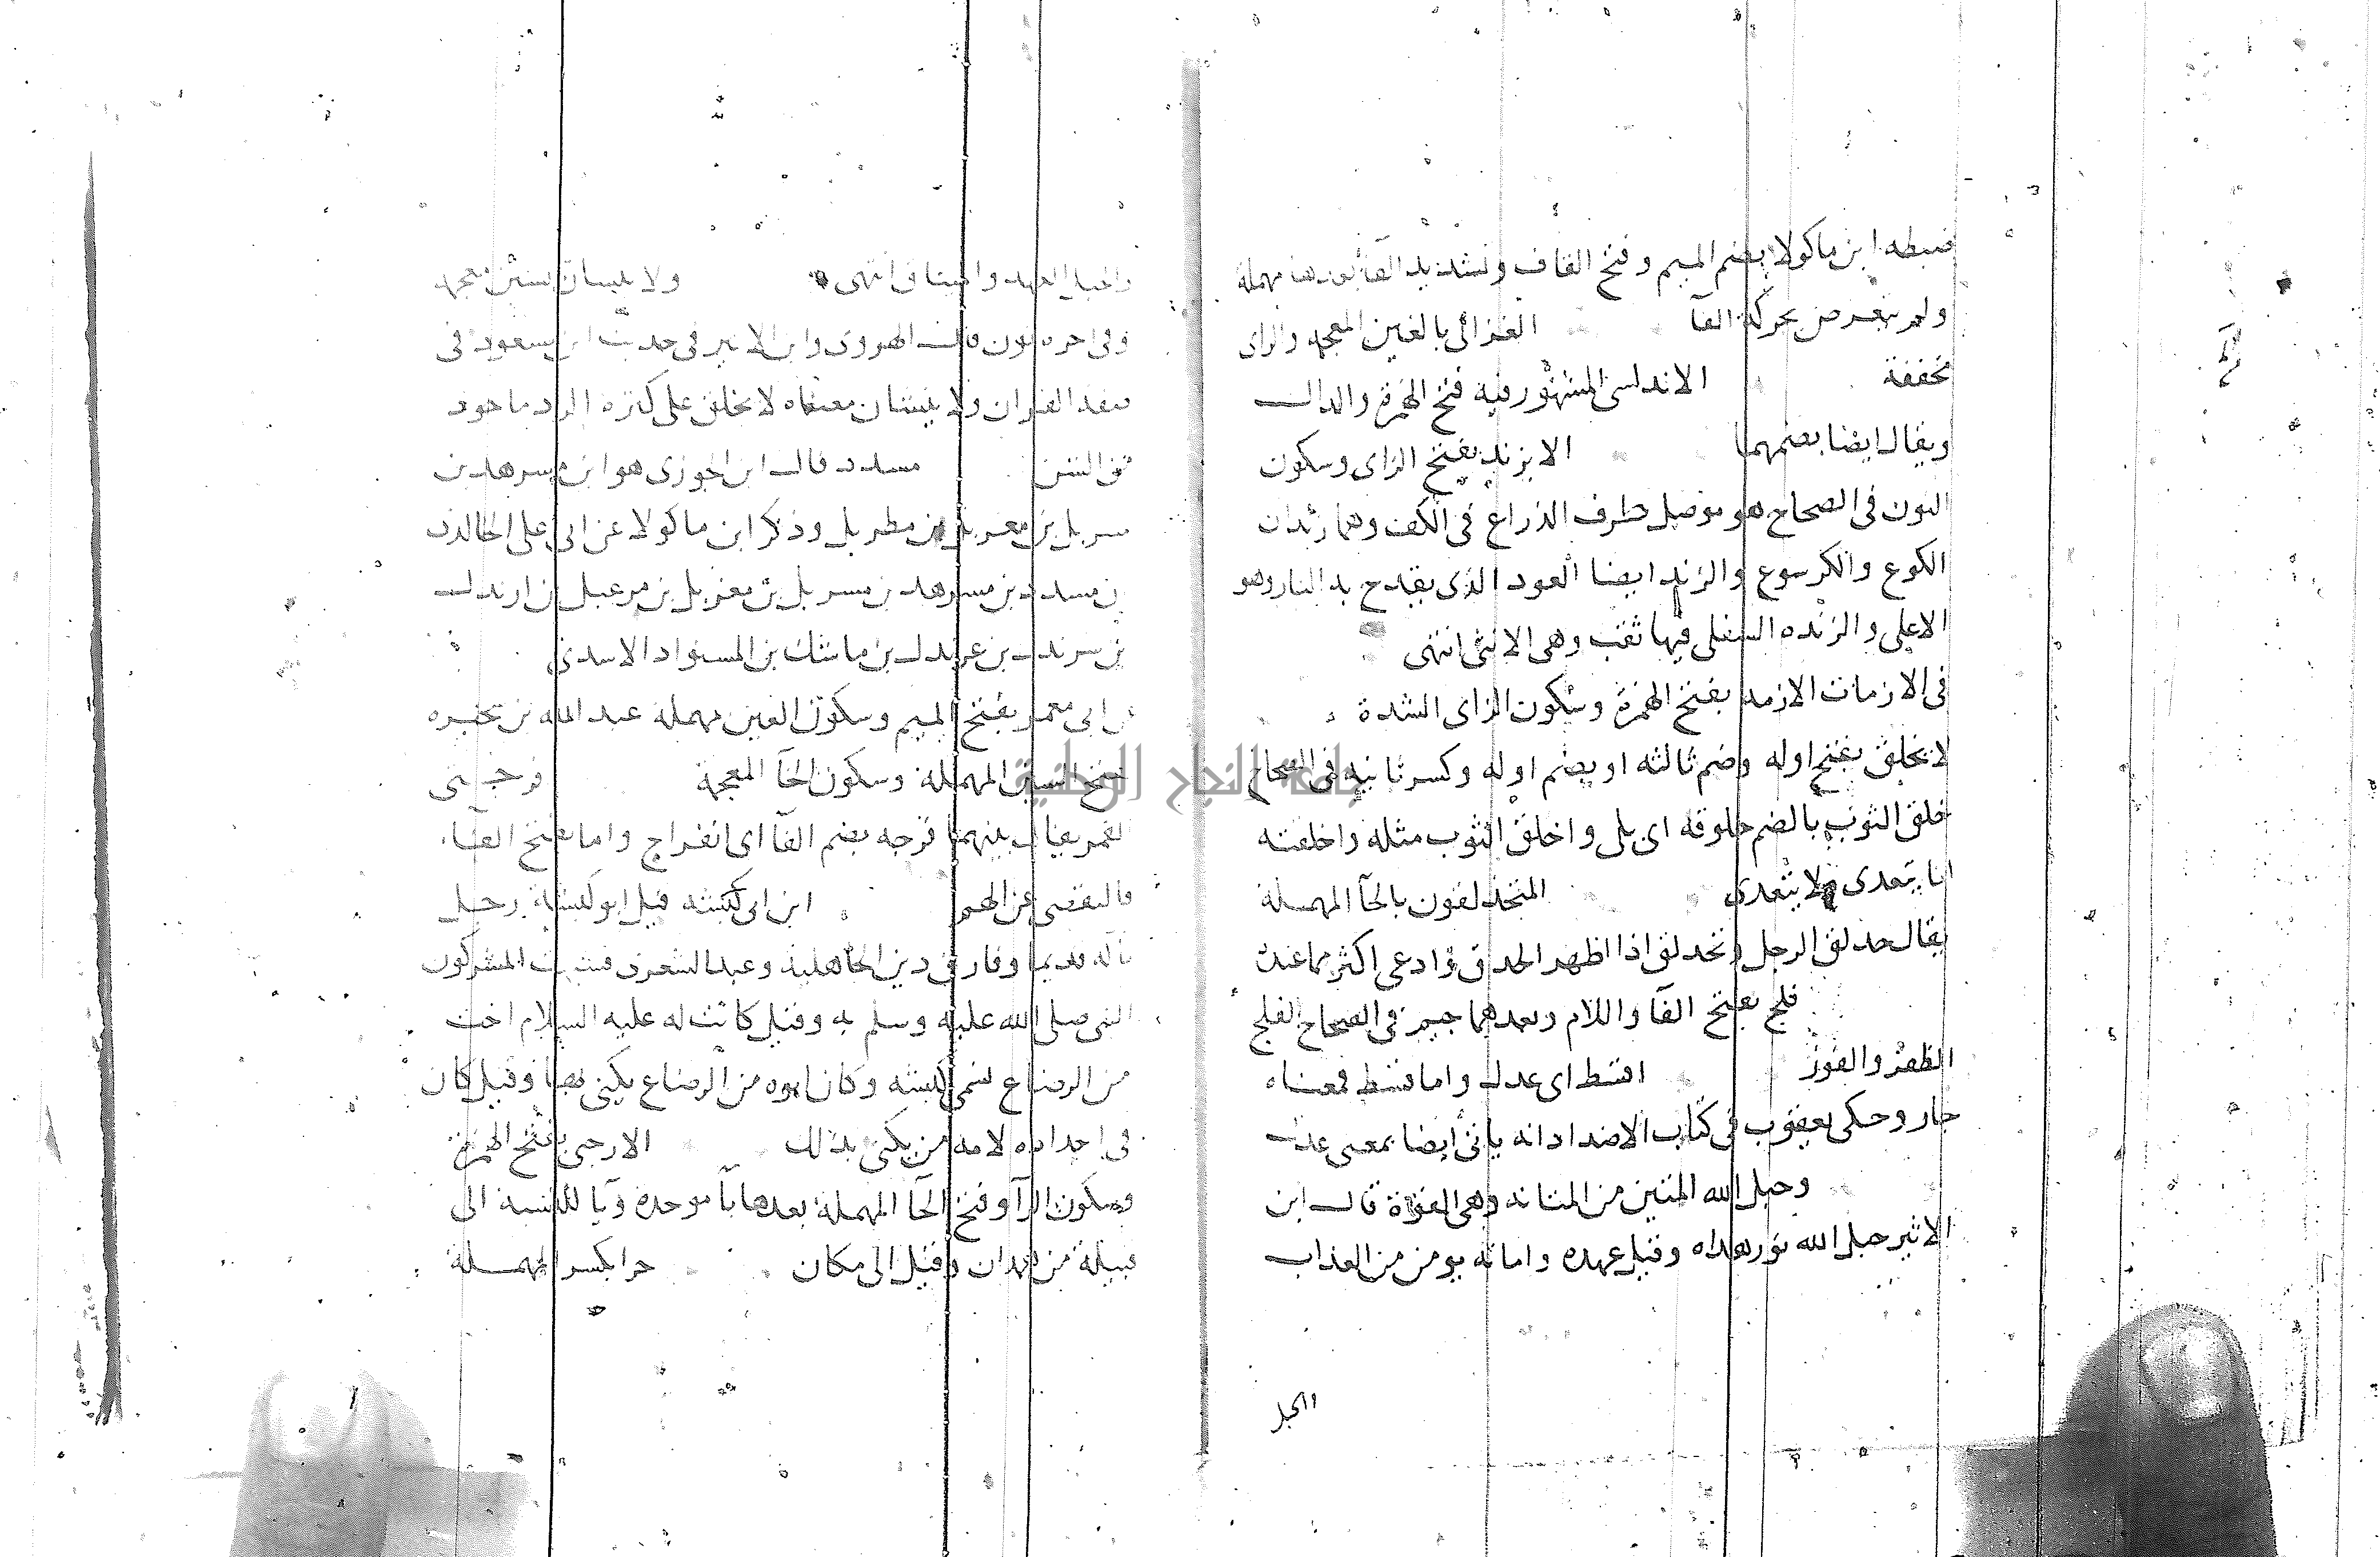 ضبطه ابن ماكولا بضم الميم وفتح القاف وتشديد الفآ بعدها مهملة
ولم يتعرض بحركة الفآ الغزالى بالغين المعجمه والزاى
مخففة الاندلسى المشهور فيه فتح الهمزة والدال
ويقال ايضا بضمهما الابزند بفتح الزاى وسكون
النون فى الصحاح هو موصل طرف الذراع فى الكف وهما زندان
الكوع والكرسوع والزند ايضا العود الذى يقدح به النار وهو
الاعلى والزنده السفلى فيها ثقب وهى الانثى انتهى
فى الازمات الازمه بفتح الهمزة وسكون الزاى الشدة
لا يخلق بفتح اوله وضم ثالثه او بضم اوله وكسر ثانيه فى الصحاح
خلق الثوب بالضم خلوقه اى بلى واخلق الثوب مثله واخلقته
انا يتعدى ولا يتعدى المتحدلقون بالحآ المهملة
يقال حدلق الرجل وتحدلق اذا اظهر الحدق وادعى اكثر مما عنده
فلج بفتح الفآ واللام وبعدهما جيم فى الصحاح الفلج
الظفر والفوز اقسط اى عدل واما قسط فمعناه
جار وحكى يعقوب فى كتاب الاضداد انه ياتى ايضا بمعنى عدل
وحبل الله المتين من المتانه وهى القوة قال ابن
الاثير حبل الله نور هداه وقيل عهده وامانه يومن من العذاب
والحبل
والحبل العهد والميثاق انتهى ولا يتشان بشين معجمه
وفى اخره نون قال الهروى وابن الاثير فى حديث ابن مسعود فى
صفه القران ولا يتشان معناه لا يخلق على كثره الرد ماخوذ
من الشن مسدد قال ابن الجوزى هو ابن مسرهد بن
مسربل بن مغربل بن مطربل وذكر ابن ماكولا عن ابى على الخالدى
بن مسدد بن مسرهد بن مسربل بن مغربل بن مرعبل بن ارندل
بن سرندل بن عرندل بن ماشك بن المستورد الاسدى
بن ابى معمر بفتح الميم وسكون العين مهملة عبد الله بن سخبره
بفتح السين المهملة وسكون الخآ المعجمة فرجه
الغم يقال بينهما فرجه بضم الفآ اى انفراج واما بفتح الفآ
فالتفصى عن الهم ابن ابى كبشه قيل ابو كبشة رجل
تاله قديما وفارق دين الجاهلية وعبد الشعرى فشبه المشركون
النبى صلى الله عليه وسلم به وقيل كانت له عليه السلام اخت
من الرضاع تسمى كبشه وكان ابوه من الرضاع يكنى بها وقيل كان
فى اجداده لامه من يكنى بذلك الارحبى بفتح الهمزة
وسكون الرآ وفتح الحآ المهملة بعدها بآ موحدة ويآ للنسبة الى
قبيلة من همدان وقيل الى مكان حرا بكسر المهملة
جامعة النجاح الوطنية